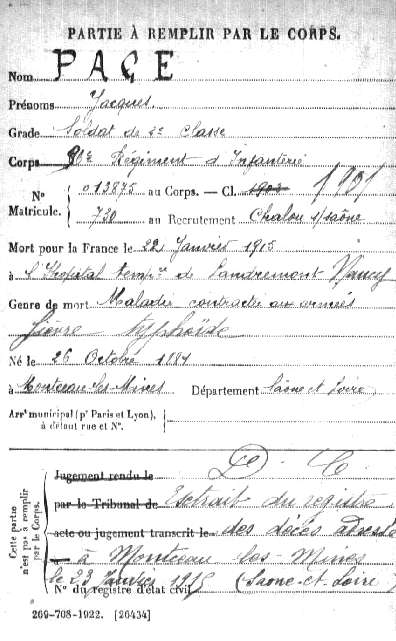 PARTIE À REMPLIR PAR LE CORPS.
Nom PAGE
Prénoms Jacques
Grade Soldat de 2e Classe
Corps Régiment d'Infanterie
No Matricule. 013875 au Corps. — Cl. 1901
730 au Recrutement Chalon s/saône
Mort pour la France le 22 Janvier 1915
à l'Hôpital temp.re de Landremont Nancy
Genre de mort Maladie contractée aux armées
fièvre typhoïde
Né le 26 Octobre 1881
à Montceau-les-Mines Département Saône et Loire
Arrt municipal (pr Paris et Lyon), à défaut rue et No.
D. C.
Cette partie n'est pas à remplir par le Corps.
Jugement rendu le
par le Tribunal de Extrait du registre
acte ou jugement transcrit le des décès adressé
à Montceau-les-Mines
le 23 Janvier 1915 (Saône-et-Loire)
No du registre d'état civil
269-708-1922. [26434]